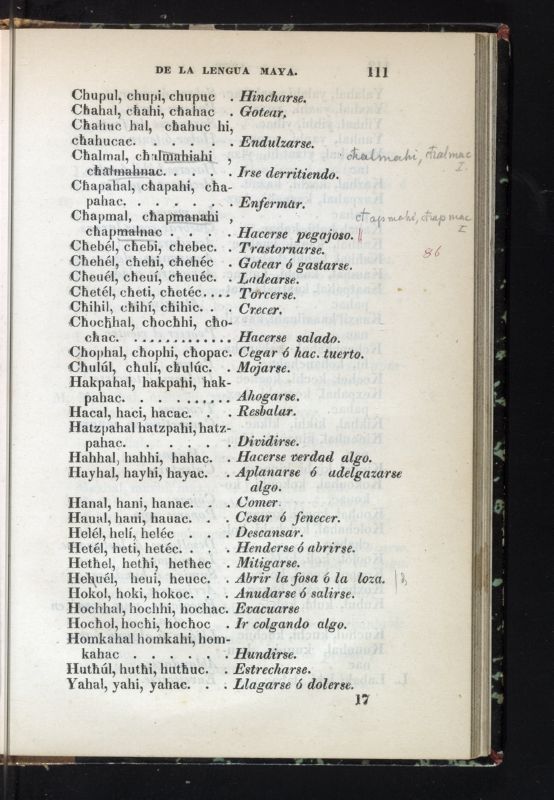 DE LA LENGUA MAYA. 111
Chupul, chupi, chupuc . Hincharse.
Cħahal, cħahi, cħahac . Gotear.
Cħahuc hal, cħahuc hi,
cħahucac. . . . . . Endulzarse.
Cħalmal, cħulmahiahi cħalmahi, cħalmac
cħalmahnac. . . . . Irse derritiendo. I.
Cħapahal, cħapahi, cħa-
pahac. . . . . . Enfermar.
Cħapmal, cħapmanahi , cħapmahi, cħapmac
cħapmalnac . . . . Hacerse pegajoso. || I
Cħebél, cħebi, cħebec. . Trastornarse. 86
Cħehél, cħehi, cħehéc . Gotear ó gastarse.
Cħeuél, cħeuí, cħeuéc. . Ladearse.
Cħetél, cħeti, cħetéc.... Torcerse.
Cħihil, cħihí, cħihic. . . Crecer.
Cħocħhal, cħocħhi, cħo-
cħac. ............ Hacerse salado.
Cħophal, cħophi, cħopac. Cegar ó hac. tuerto.
Cħulúl, cħulí, cħulúc. . Mojarse.
Hakpahal, hakpahi, hak-
pahac. . . ....... Ahogarse.
Hacal, haci, hacac. . . Resbalar.
Hatzpahal hatzpahi, hatz-
pahac. . . . . . . Dividirse.
Hahhal, hahhi, hahac. . Hacerse verdad algo.
Hayhal, hayhi, hayac. . Aplanarse ó adelgazarse
algo.
Hanal, hani, hanac. . . Comer
Haual, haui, hauac. . . Cesar ó fenecer.
Helél, helí, heléc . . . Descansar.
Hetél, heti, hetéc. . . . Henderse ó abrirse.
Hetħel, hetħi, hetħec . Mitigarse.
Hehuél, heui, heuec. . Abrir la fosa ó la loza.
Hokol, hoki, hokoc. . . Anudarse ó salirse.
Hochhal, hochhi, hochac. Evacuarse
Hocħol, hocħi, hocħoc . Ir colgando algo.
Homkahal homkahi, hom-
kahac . . . . . . Hundirse.
Hutħúl, hutħi, hutħuc. . Estrecharse.
Yahal, yahi, yahac. . . Llagarse ó dolerse.
17